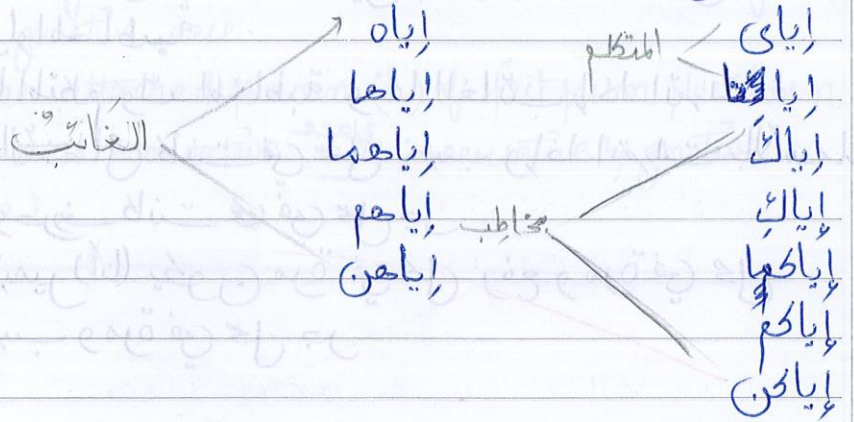 إياى
إيانا
إياكَ
إياكِ
إياكما
إياكمْ
إياكن
المتكلم
مخاطِب
إياه
إياها
إياهما
إياهم
إياهن
الغَائِبْ